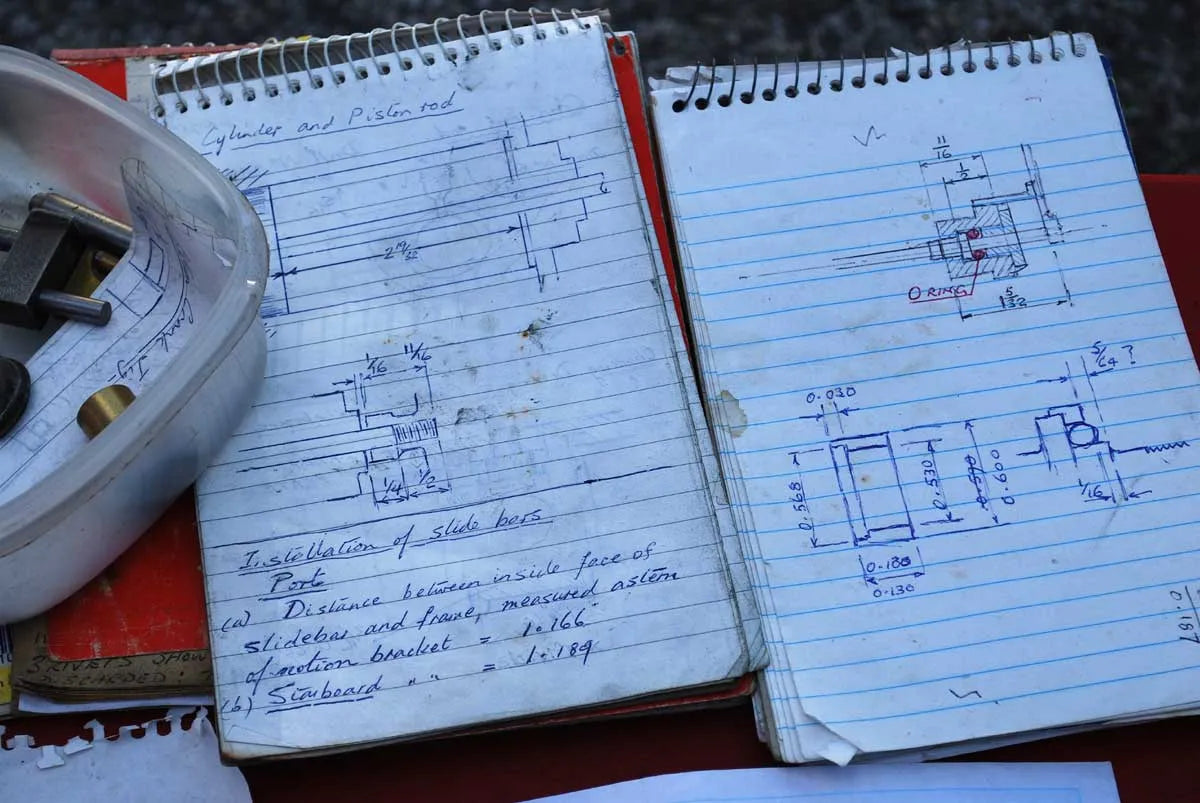 Cylinder and Piston rod
2 19/32
1/16 11/16
1/4 1/2
Installation of slide bars
Port
(a) Distance between inside face of
slidebar and frame, measured astern
of motion bracket = 1.166"
(b) Starboard " " = 1.189
11/16
1/2
O RING
5/32
5/64 ?
0.030
0.568
0.530
0.570
0.600
1/16
0.100
0.130
0.187
3 RIVETS SHOW
DISCARDED!